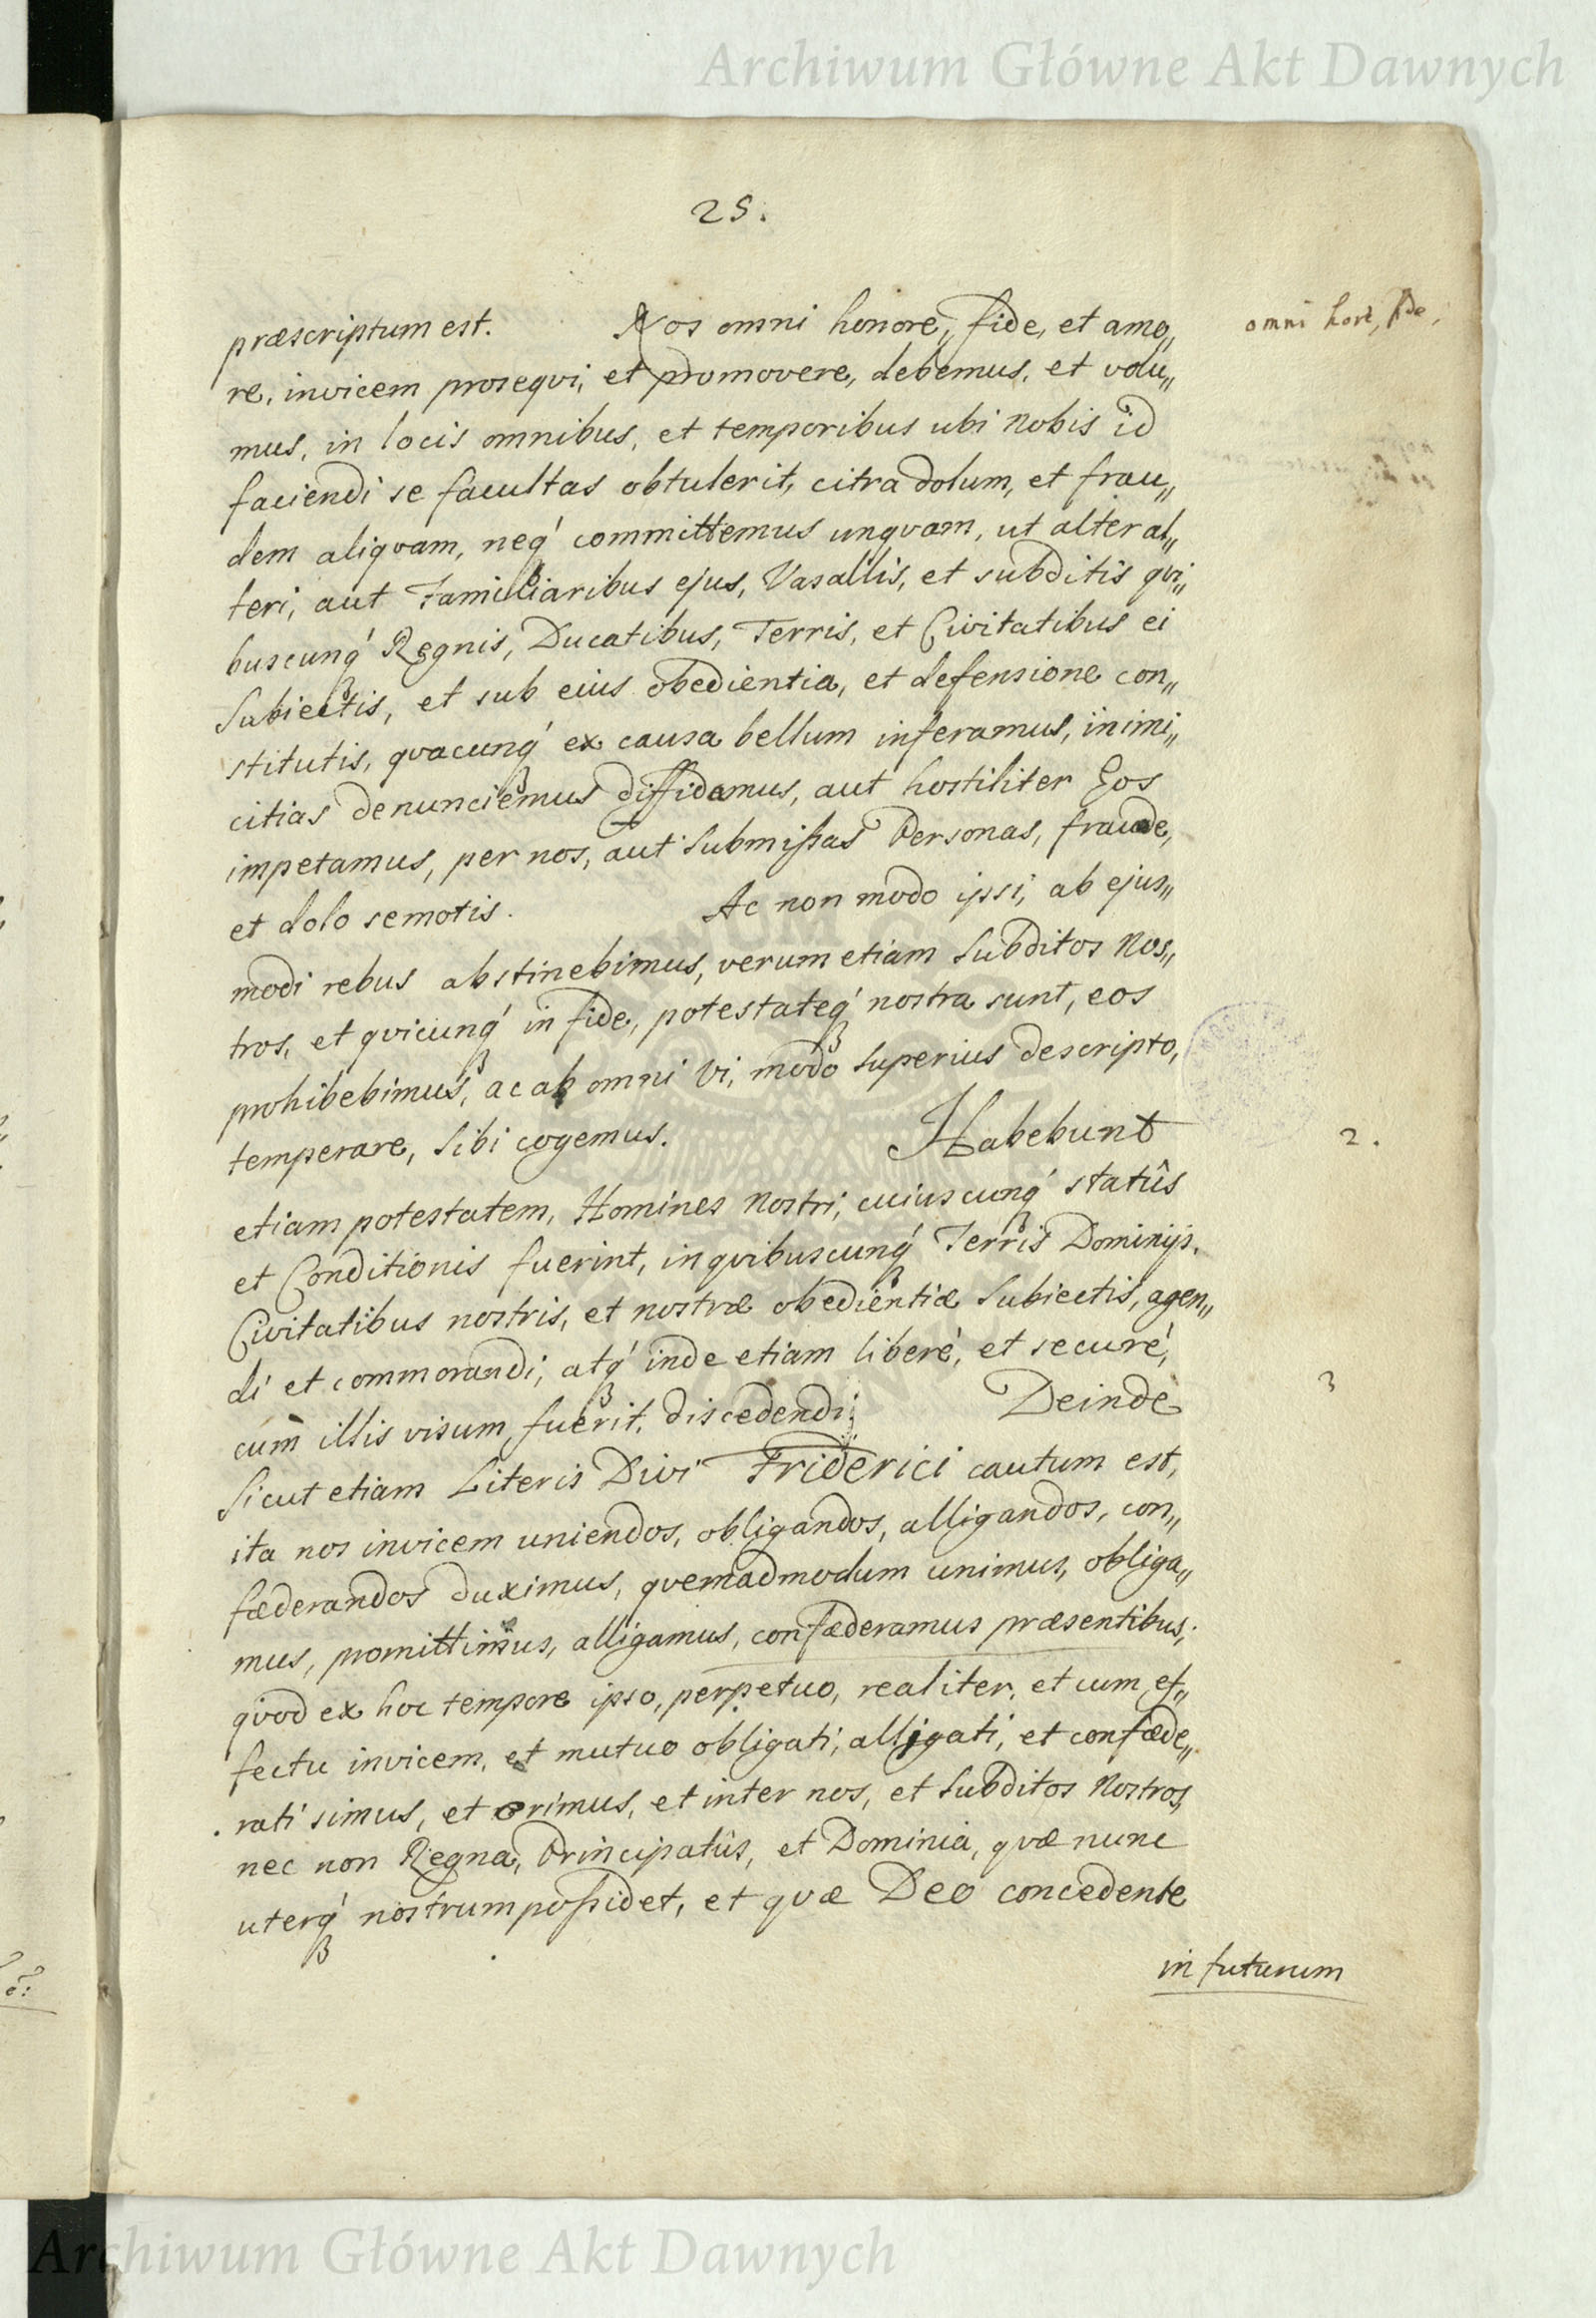 Archiwum Główne Akt Dawnych
25.
præscriptum est. Nos omni honore,, fide, et amo,,
omni hore, fide,
re, invicem proseqvi, et promovere,, debemus, et volu,,
mus, in locis omnibus, et temporibus ubi nobis id
faciendi se facultas obtulerit, citra dolum, et frau,,
dem aliqvam, neq́ committemus unqvam, ut alter al,,
teri, aut Familiaribus ejus, Vasallis, et subditis qvi,,
buscunq́ Regnis, Ducatibus, Terris, et Civitatibus ei
Subiectis, et sub eius obedientia, et defensione con,,
stitutis, qvacunq́ ex causa bellum inferamus, inimi,,
citias denunciemus diffidamus, aut hostiliter Eos
impetamus, per nos, aut Submißas Personas, fraude,
et dolo semotis. Ac non modo ipsi, ab ejus,,
modi rebus abstinebimus, verum etiam Subditos Nos,,
tros, et qvicunq́ in fide, potestateq́ nostra sunt, eos
prohibebimus, ac ab omni vi, modo Superius descripto,
temperare, Sibi cogemus. Habebunt
2.
etiam potestatem, Homines Nostri, cuiuscunq́ statûs
et Conditionis fuerint, in qvibuscunq́ Terris Dominijs,
Civitatibus nostris, et nostræ obedientiæ Subiectis, agen,,
di et commorandi, atq́ inde etiam liberè, et securè,
cum illis visum fuerit, discedendi; Deinde
3
Sicut etiam Literis Divi Friderici cautum est,
ita nos invicem uniendos, obligandos, alligandos, con,,
fæderandos duximus, qvemadmodum unimus, obliga,,
mus, promittimus, alligamus, confæderamus præsentibus,
qvod ex hoc tempore ipso, perpetuo, realiter, et cum ef,,
fectu invicem, et mutuo obligati, alligati, et confæde,,
rati simus, et erimus, et inter nos, et Subditos Nostros,
nec non Regna, Principatûs, et Dominia, qvæ nunc
uterq́ nostrum poßidet, et qvæ Deo concedente
in futurum
Archiwum Główne Akt Dawnych